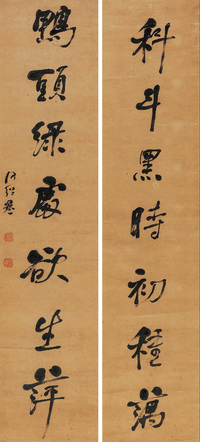 科斗黑時初種藕
鴨頭綠處欲生萍
何紹基